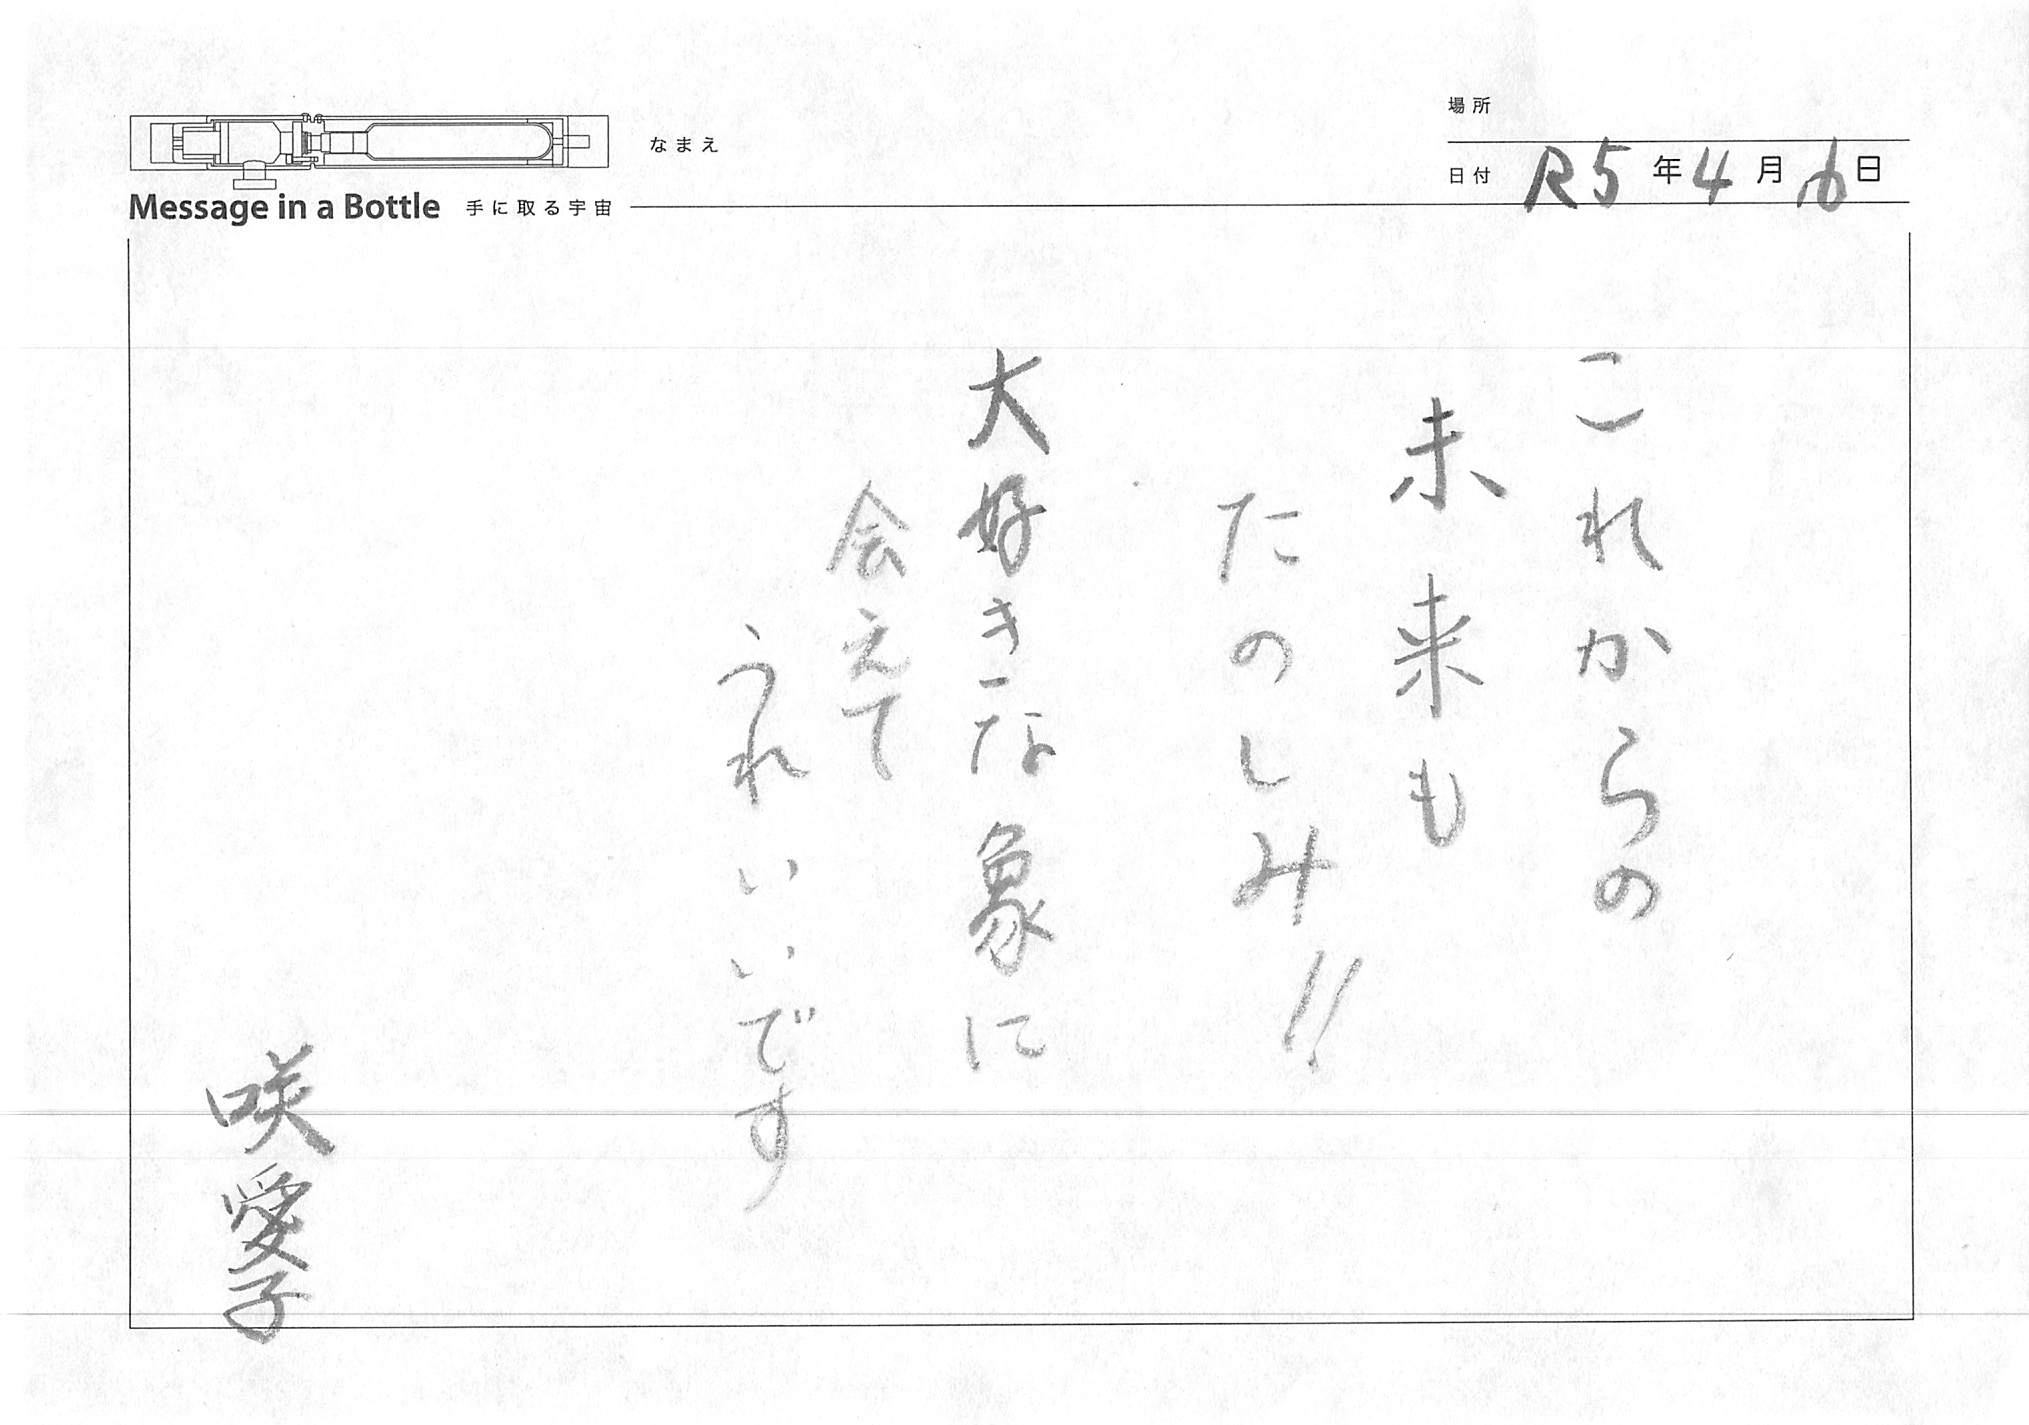 場所
なまえ
日付 R5年4月16日
Message in a Bottle 手に取る宇宙
これからの
未来も
たのしみ!!
大好きな象に
会えて
うれいいです
咲愛子